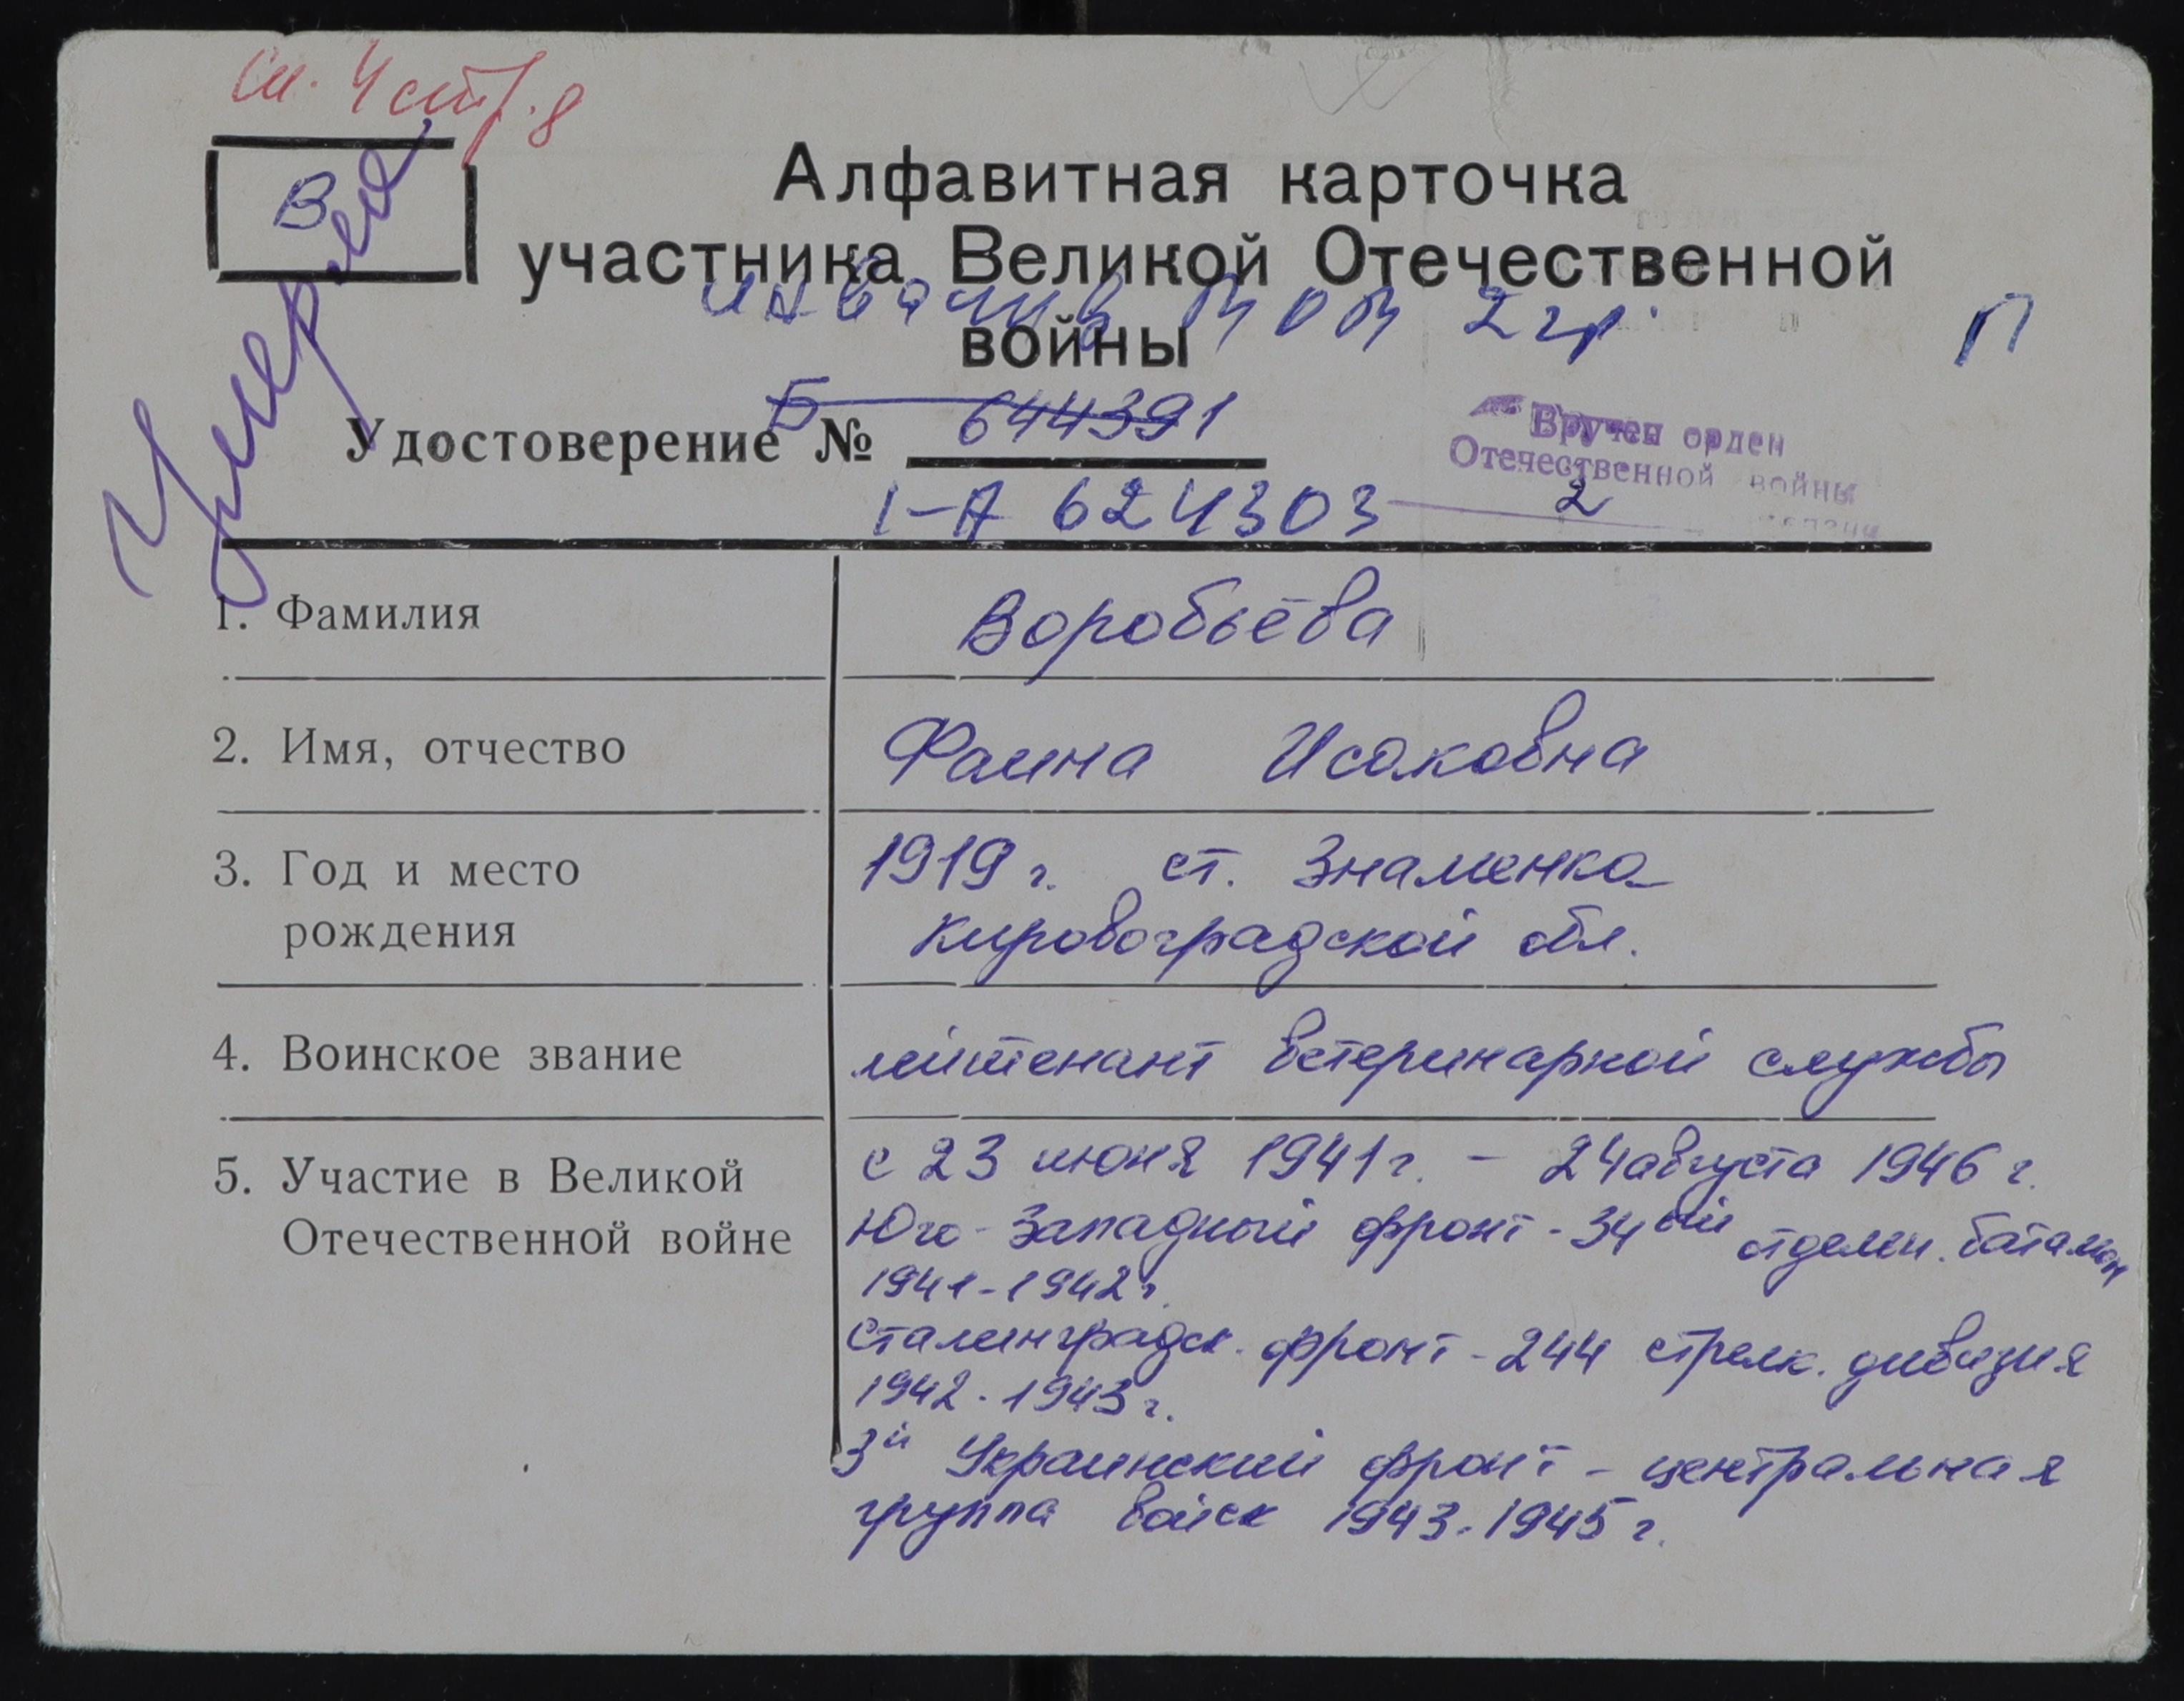 В
Умерла
Алфавитная карточка
участника Великой Отечественной
инвалид ВОВ 2 гр.
П
войны
Удостоверение № Б 644391
Вручен орден
Отечественной войны
2 степени
I-А 624303
1. Фамилия Воробьёва
2. Имя, отчество Фаина Исаковна
3. Год и место 1919 г. ст. Знаменка
рождения Кировоградской обл.
4. Воинское звание лейтенант ветеринарной службы
5. Участие в Великой с 23 июня 1941 г. - 24 августа 1946 г.
Отечественной войне Юго-Западный фронт - 34ый отделн. батальон
1941-1942 г.
Сталинградск. фронт - 244 стрелк. дивизия
1942-1943 г.
3й Украинский фронт - центральная
группа войск 1943-1945 г.